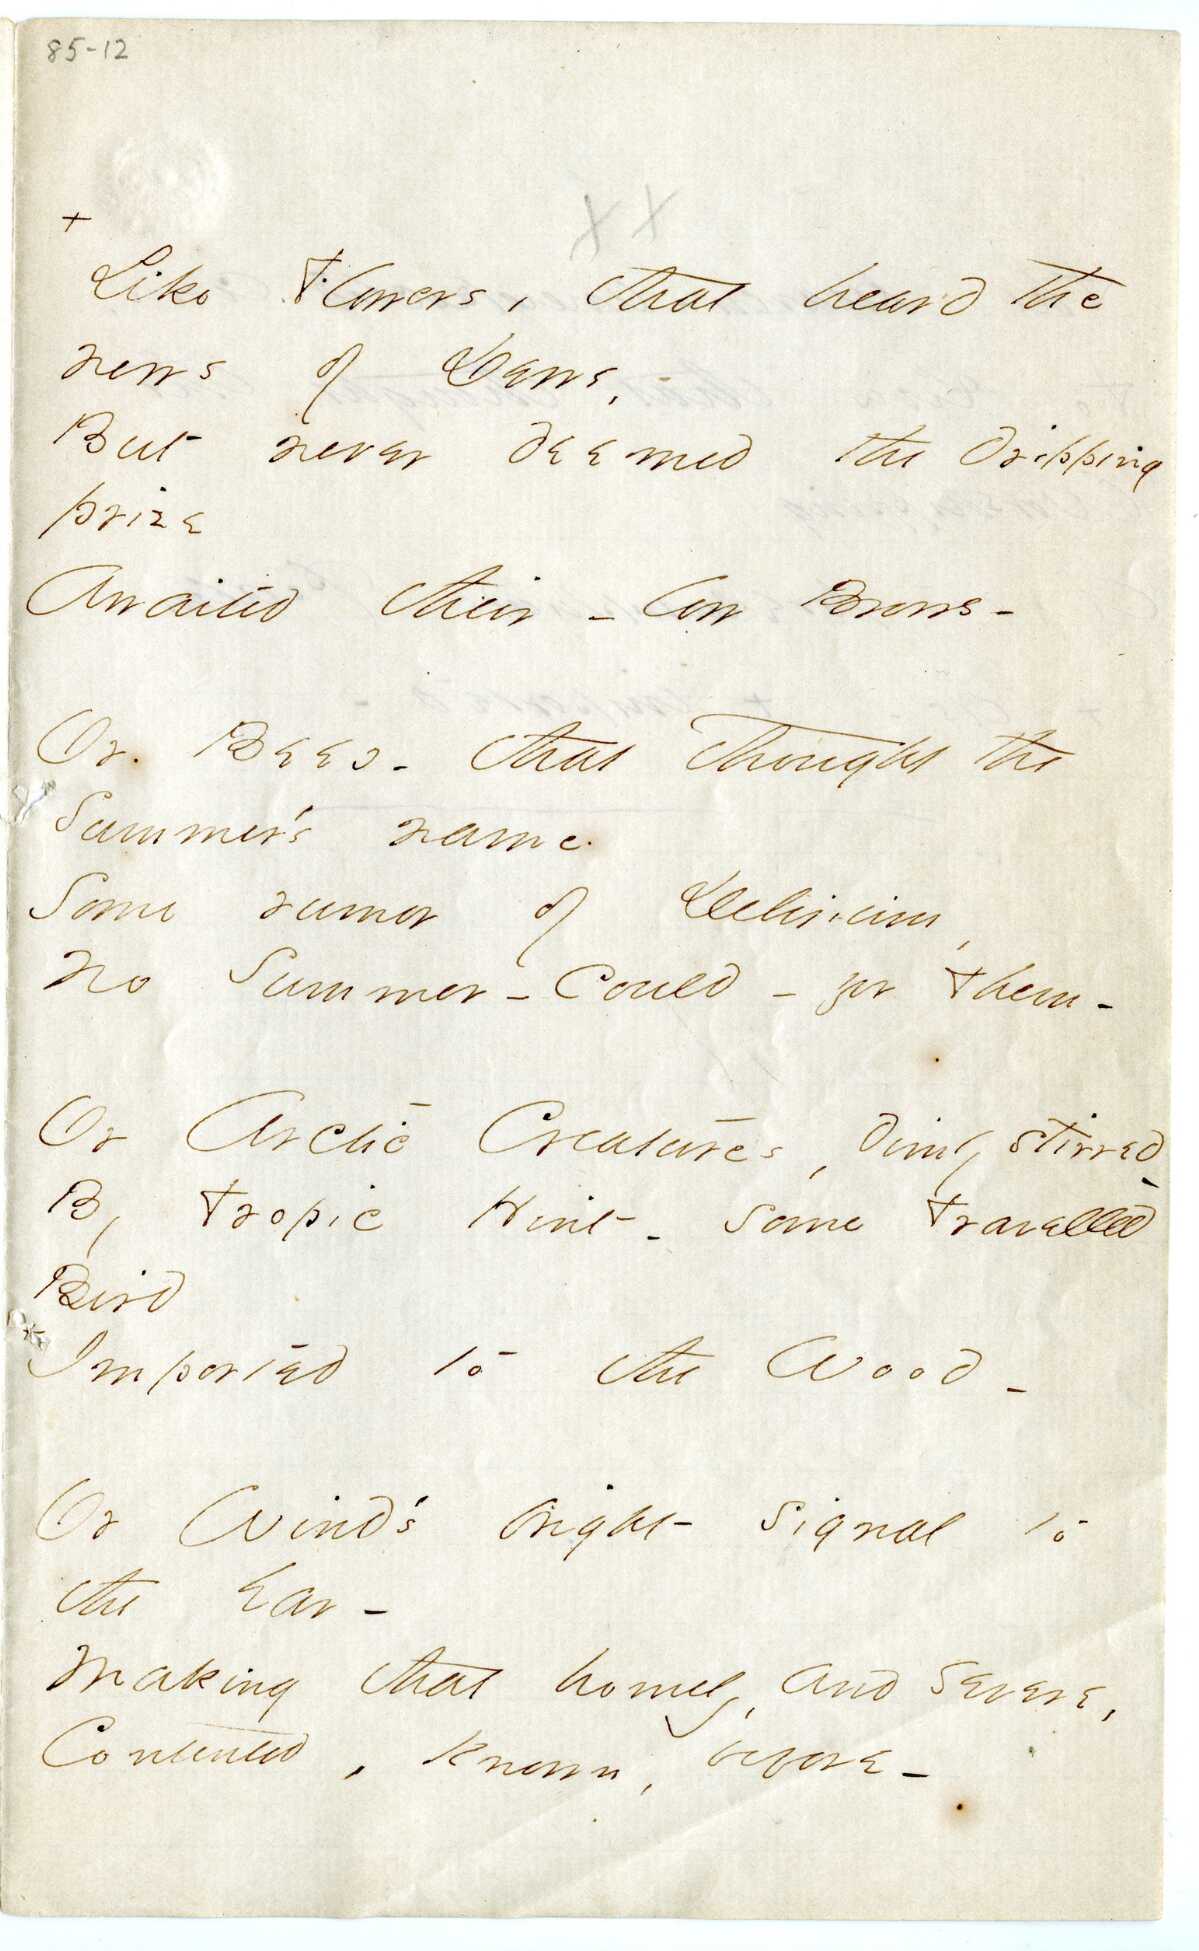 85-12
+
Like Flowers, that heard the
news of Dews,
But never deemed the dripping
prize
Awaited their - low Brows -
Or Bees - that thought the
Summer's name
Some rumor of Delirium,
No Summer - could - for Them -
Or Arctic Creatures, dimly stirred
By Tropic Hint - some Travelled
Bird
Imported to the Wood -
Or Wind's bright signal to
the Ear -
Making that homely, and severe,
Contented, known, before -